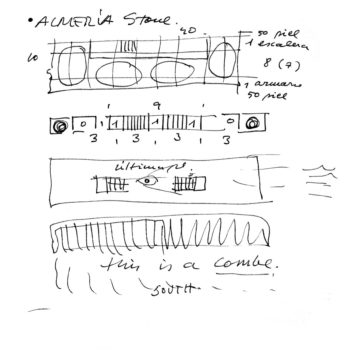 • ALMERÍA Stone.
40
10
50 piel
1 escalera
8 (7)
1 armario
50 piel
9
0 1 1 1 0
3 3 1 3 3
última pl.
this is a combe.
SOUTH